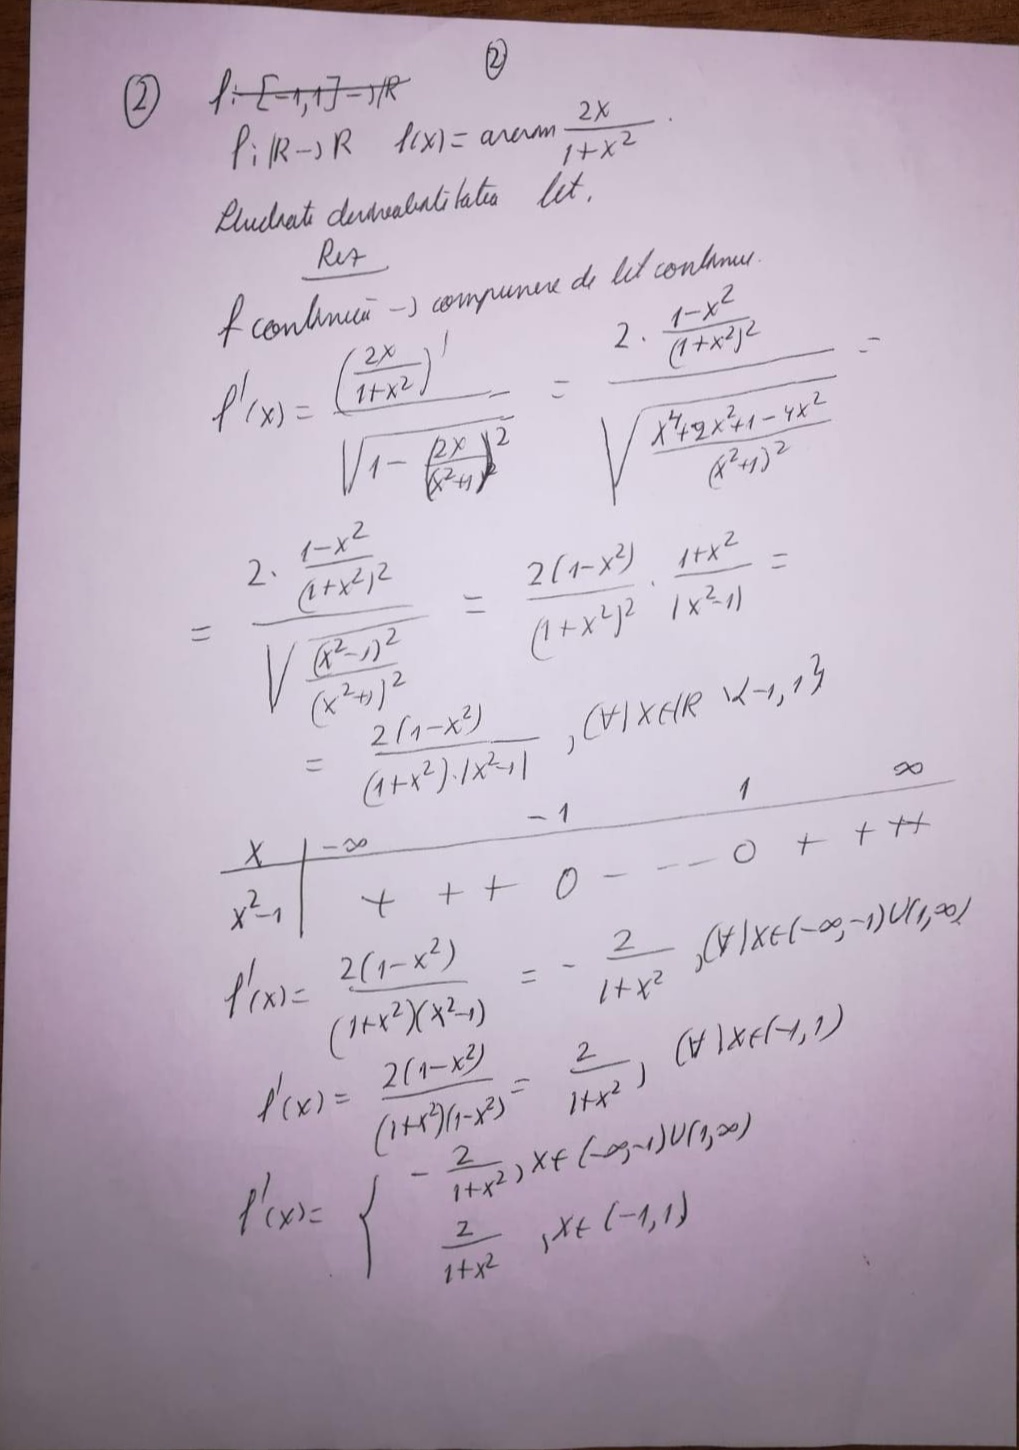 ②
② f: [-1,1] → ℝ
f: ℝ → ℝ f(x) = arcsin 2x/(1+x²).
Studiati derivabilitatea fct.
Rez
f continuă → compunere de fct continue.
f'(x) = (2x/(1+x²))' / √(1 - (2x/(x²+1))²) = 2·(1-x²)/(1+x²)² / √((x⁴+2x²+1-4x²)/(x²+1)²) =
= 2·(1-x²)/(1+x²)² / √((x²-1)²/(x²+1)²) = 2(1-x²)/(1+x²)² · (1+x²)/|x²-1| =
= 2(1-x²)/((1+x²)·|x²-1|), (∀) x∈ℝ \ {-1, 1}
x | -∞ -1 1 ∞
x²-1 | + + + 0 - - - 0 + + + +
f'(x) = 2(1-x²)/((1+x²)(x²-1)) = - 2/(1+x²), (∀) x∈(-∞,-1)∪(1,∞)
f'(x) = 2(1-x²)/((1+x²)(1-x²)) = 2/(1+x²), (∀) x∈(-1,1)
f'(x) = { - 2/(1+x²), x∈(-∞,-1)∪(1,∞)
2/(1+x²), x∈(-1,1)